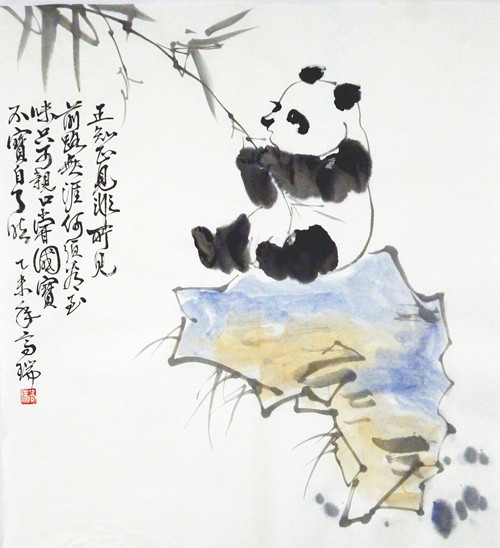 正知正見非所見
前路無涯何須至
味只可親口嘗國寶
不寶自了 乙未年高瑞